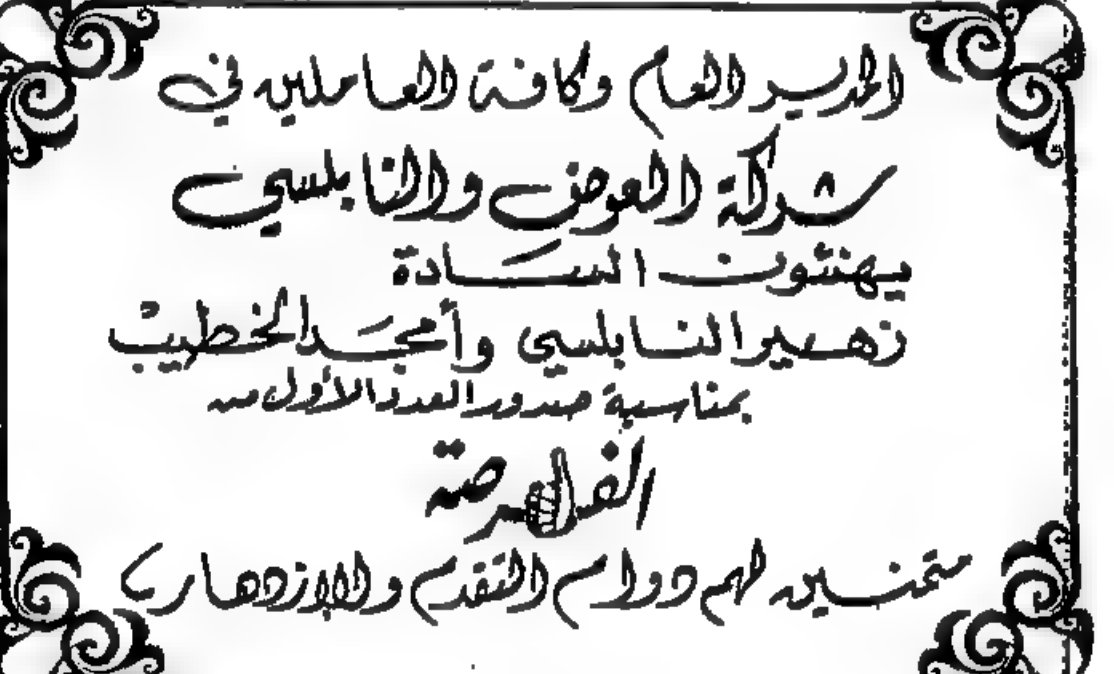 المدير العام وكافة العاملين في
شركة العوض والنابلسي
يهنئون السادة
زهير النابلسي وأمجد الخطيب
بمناسبة صدور العدد الأول من
الفرصة
متمنين لهم دوام التقدم والإزدهار